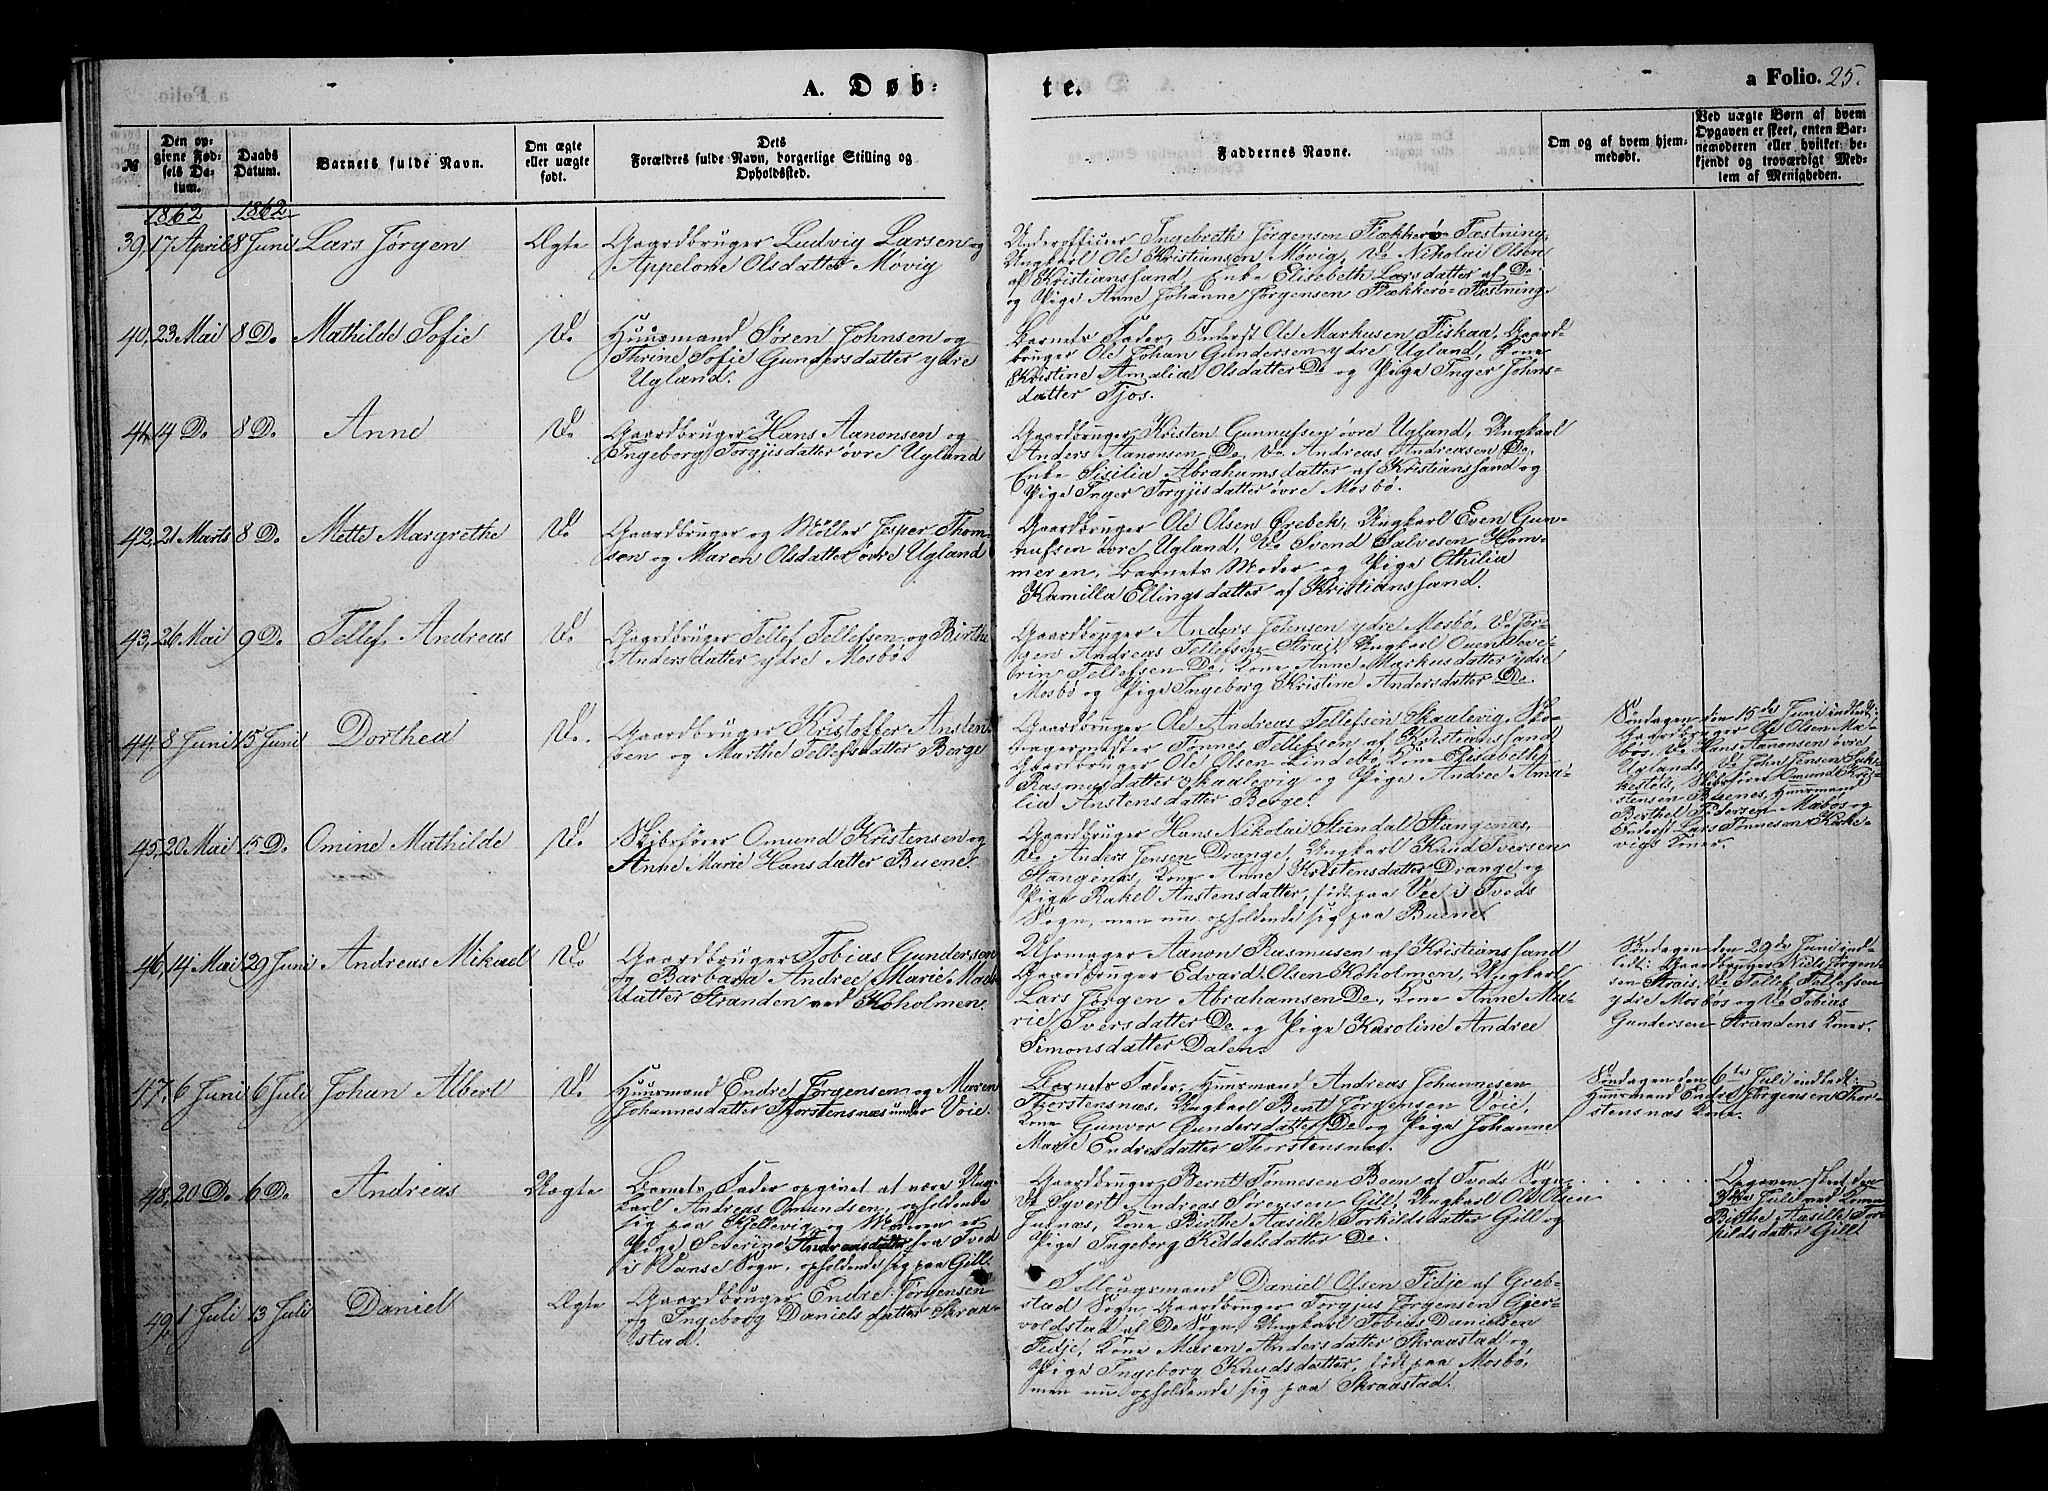 A. Døb-
te.
a Folio. 25.
№
Den op-
givne Fød-
sels Da-
tum.
Daabs
Datum.
Barnets fulde Navn.
Om ægte
eller uægte
født.
Dets
Forældres fulde Navn, borgerlige Stilling og
Opholdssted.
Faddernes Navne.
Om og af hvem hjem-
medøbt.
Ved uægte Børn af hvem
Opgaven er skeet, enten Bar-
nemoderen eller hvilket be-
kjendt og troværdigt Med-
lem af Menigheden.
1862 1862
39, 17 April 8 Juni Lars Jørgen Ægte
Gaardbruger Ludvig Larsen og
Appelone Olsdatter Møvig
Underofficer Ingebreth Jørgensen Flækkerø Fæstning,
Ungkarl Ole Kristiansen Møvig, Do Nikolai Olsen
af Kristianssand, Enke Elisebeth Larsdatter af Do
og Pige Anne Johanne Jørgensen Flækkerø-Fæstning.
40, 23 Mai 8 D. Mathilde Sofie Do
Huusmand Søren Johnsen og
Thrine Sofie Gundersdatter ydre
Ugland.
Barnets Fader, Inderst Ole Markusen Fiskaa, Gaard-
bruger Ole Johan Gundersen ydre Ugland, Kone
Kristine Amalia Olsdatter Do og Pige Inger Johns-
datter Tjos.
41, 4 D. 8 D. Anne Do
Gaardbruger Hans Aanonsen og
Ingeborg Torgjisdatter øvre Ugland
Gaardbruger Kristen Gunnufsen øvre Ugland, Ungkarl
Anders Aanonsen Do, Do Andreas Andreasen Do,
Enke Sisilia Abrahamsdatter af Kristianssand og
Pige Inger Torgjisdatter øvre Mosbø.
42, 21 Marts 8 D. Mette Margrethe Do
Gaardbruger og Møller Jesper Thom-
sen og Maren Olsdatter øvre Ugland
Gaardbruger Ole Olsen Ørebek, Ungkarl Even Gun-
nufsen øvre Ugland, Do Svend Salvesen Hom-
meren, Barnets Moder og Pige Othilia
Kamilla Ellingsdatter af Kristianssand.
43, 26 Mai 9 D. Tellef Andreas Do
Gaardbruger Tellef Tellefsen og Birthe
Andersdatter ydre Mosbø.
Gaardbruger Anders Jensen ydre Mosbø, Do Jør-
gen Andreas Tellefsen Strai, Ungkarl Ouen Seve-
rin Tellefsen Do, Kone Anne Markusdatter ydre
Mosbø og Pige Ingeborg Kristine Andersdatter Do.
44, 8 Juni 15 Juni Dorthea Do.
Gaardbruger Kristoffer Ansten-
sen og Marthe Tellefsdatter Berge
Gaardbruger Ole Andreas Tellefsen Skaalevig, Sko-
magermester Tønnes Tellefsen af Kristianssand
Gaardbruger Ole Olsen Lindebø, Kone Elisabeth
Rasmusdatter Skaalevig og Pige Andree Ama-
lia Anstensdatter Berge.
Søndagen den 15de Juni indledt:
Gaardbruger Ole Olsen Ma-
bøs, Do Hans Aanonsen øvre
Uglands, Do John Jensen
Skibsfører Omund Kris-
stensen Buenes, Huusmand
Berthel Pedersen Mabøs og
Inderst Lars Tønnesen Kirke-
vigs Koner.
45, 20 Mai 15 D. Omine Mathilde Do
Skibsfører Omund Kristensen og
Anne Marie Hansdatter Buene.
Gaardbruger Hans Nikolai Steindal Stangenæs,
Do Anders Jensen Drange, Ungkarl Knud Iversen
Stangenæs, Kone Anne Kristensdatter Drange og
Pige Rakel Anstensdatter, født paa Vee i Tveds
Sogn, men nu opholdende sig paa Buene.
46, 14 Mai 29 Juni Andreas Mikael Do
Gaardbruger Tobias Gundersen
og Barbara Andree Marie Mads-
datter Stranden ved Koholmen.
Uhrmager Aanon Rasmusen af Kristianssand
Gaardbruger Edvard Olsen Koholmen, Ungkarl
Lars Jørgen Abrahamsen Do, Kone Anne Ma-
rie Iversdatter Do og Pige Karoline Andree
Simonsdatter Dalen.
Søndagen den 29de Juni ind-
ledt: Gaardbruger Niels Jørgen-
sen Strais, Do Tellef Tellefsen
ydre Mosbøs og Do Tobias
Gundersen Strandens Koner.
47, 6 Juni 6 Juli Johan Albert Do
Huusmand Endre Jørgensen og Maren
Johannesdatter Thorstensnæs under Voie.
Barnets Fader, Huusmand Andreas Johannesen
Thorstensnæs, Ungkarl Bent Jørgensen Voie,
Kone Gunvor Gundersdatter Do og Pige Johanne
Marie Endresdatter Thorstensnæs.
Søndagen den 6te Juli indledt:
Huusmand Endre Jørgensen Thor-
stensnæs Kone.
48, 20 D. 6 D. Andreas Uægte
Barnets Fader opgivet at være Ung-
karl Andreas Omundsen, opholdende
sig paa Kjellevig og Moderen er
Pige Severine Andreasdatter fra Tved
i Vanse Sogn, opholdende sig paa Gill.
Gaardbruger Bernt Tønnesen Boen af Tveds Sogn,
Do Syvert Andreas Sørensen Gill, Ungkarl Ole Olsen
Jusnæs, Kone Birthe Aasille Torkildsdatter Gill og
Pige Ingeborg Kiddelsdatter Do.
Opgaven skeet den
Juli ved Konen
Birthe Aasille Tor-
kildsdatter Gill.
49, 1 Juli 13 Juli Daniel Ægte
Gaardbruger Endre Jørgensen
og Ingeborg Danielsdatter Skraa-
stad.
Følougsmand Daniel Olsen Fidje af Greb-
stad Sogn, Gaardbruger Torgjus Jørgensen Gjer-
voldstad af Do Sogn, Ungkarl Tobias Danielsen
Fidje, Kone Maren Andersdatter Skraastad og
Pige Ingeborg Knudsdatter, født paa Mosbø,
men nu opholdende sig paa Skraastad.